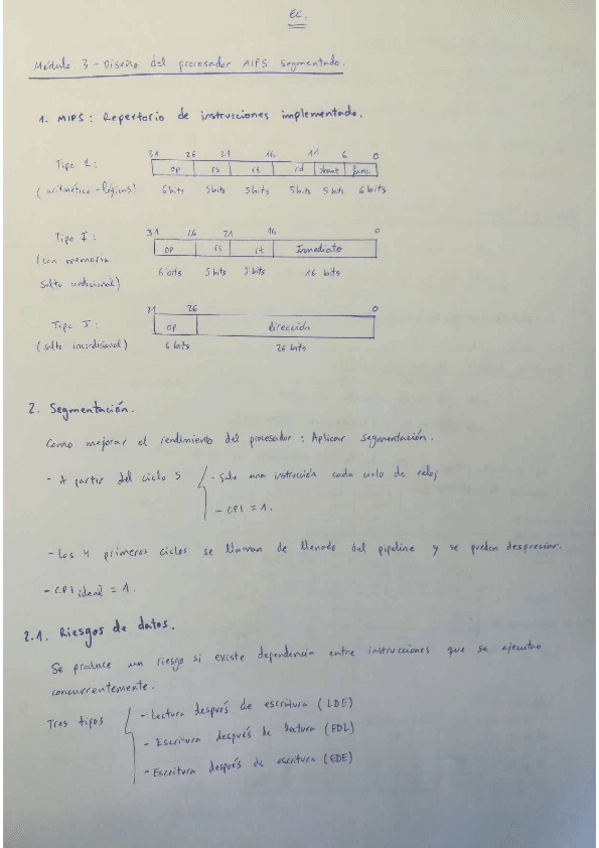 EC.
Módulo 3 - Diseño del procesador MIPS segmentado.
1. MIPS: Repertorio de instrucciones implementado.
31 26 21 16 11 6 0
Tipo R: op rs rt rd shamt func
(aritmético-lógicas) 6 bits 5 bits 5 bits 5 bits 5 bits 6 bits
31 26 21 16 0
Tipo I: op rs rt Inmediato
(con memoria 6 bits 5 bits 5 bits 16 bits
salto condicional)
31 26 0
Tipo J: op dirección
(salto incondicional) 6 bits 26 bits
2. Segmentación.
Como mejorar el rendimiento del procesador: Aplicar segmentación.
- A partir del ciclo 5 - Sale una instrucción cada ciclo de reloj
- CPI = 1.
- Los 4 primeros ciclos se llaman de llenado del pipeline y se pueden despreciar.
- CPI ideal = 1.
2.1. Riesgos de datos.
Se produce un riesgo si existe dependencia entre instrucciones que se ejecutan
concurrentemente.
Tres tipos - Lectura después de escritura (LDE)
- Escritura después de lectura (EDL)
- Escritura después de escritura (EDE)